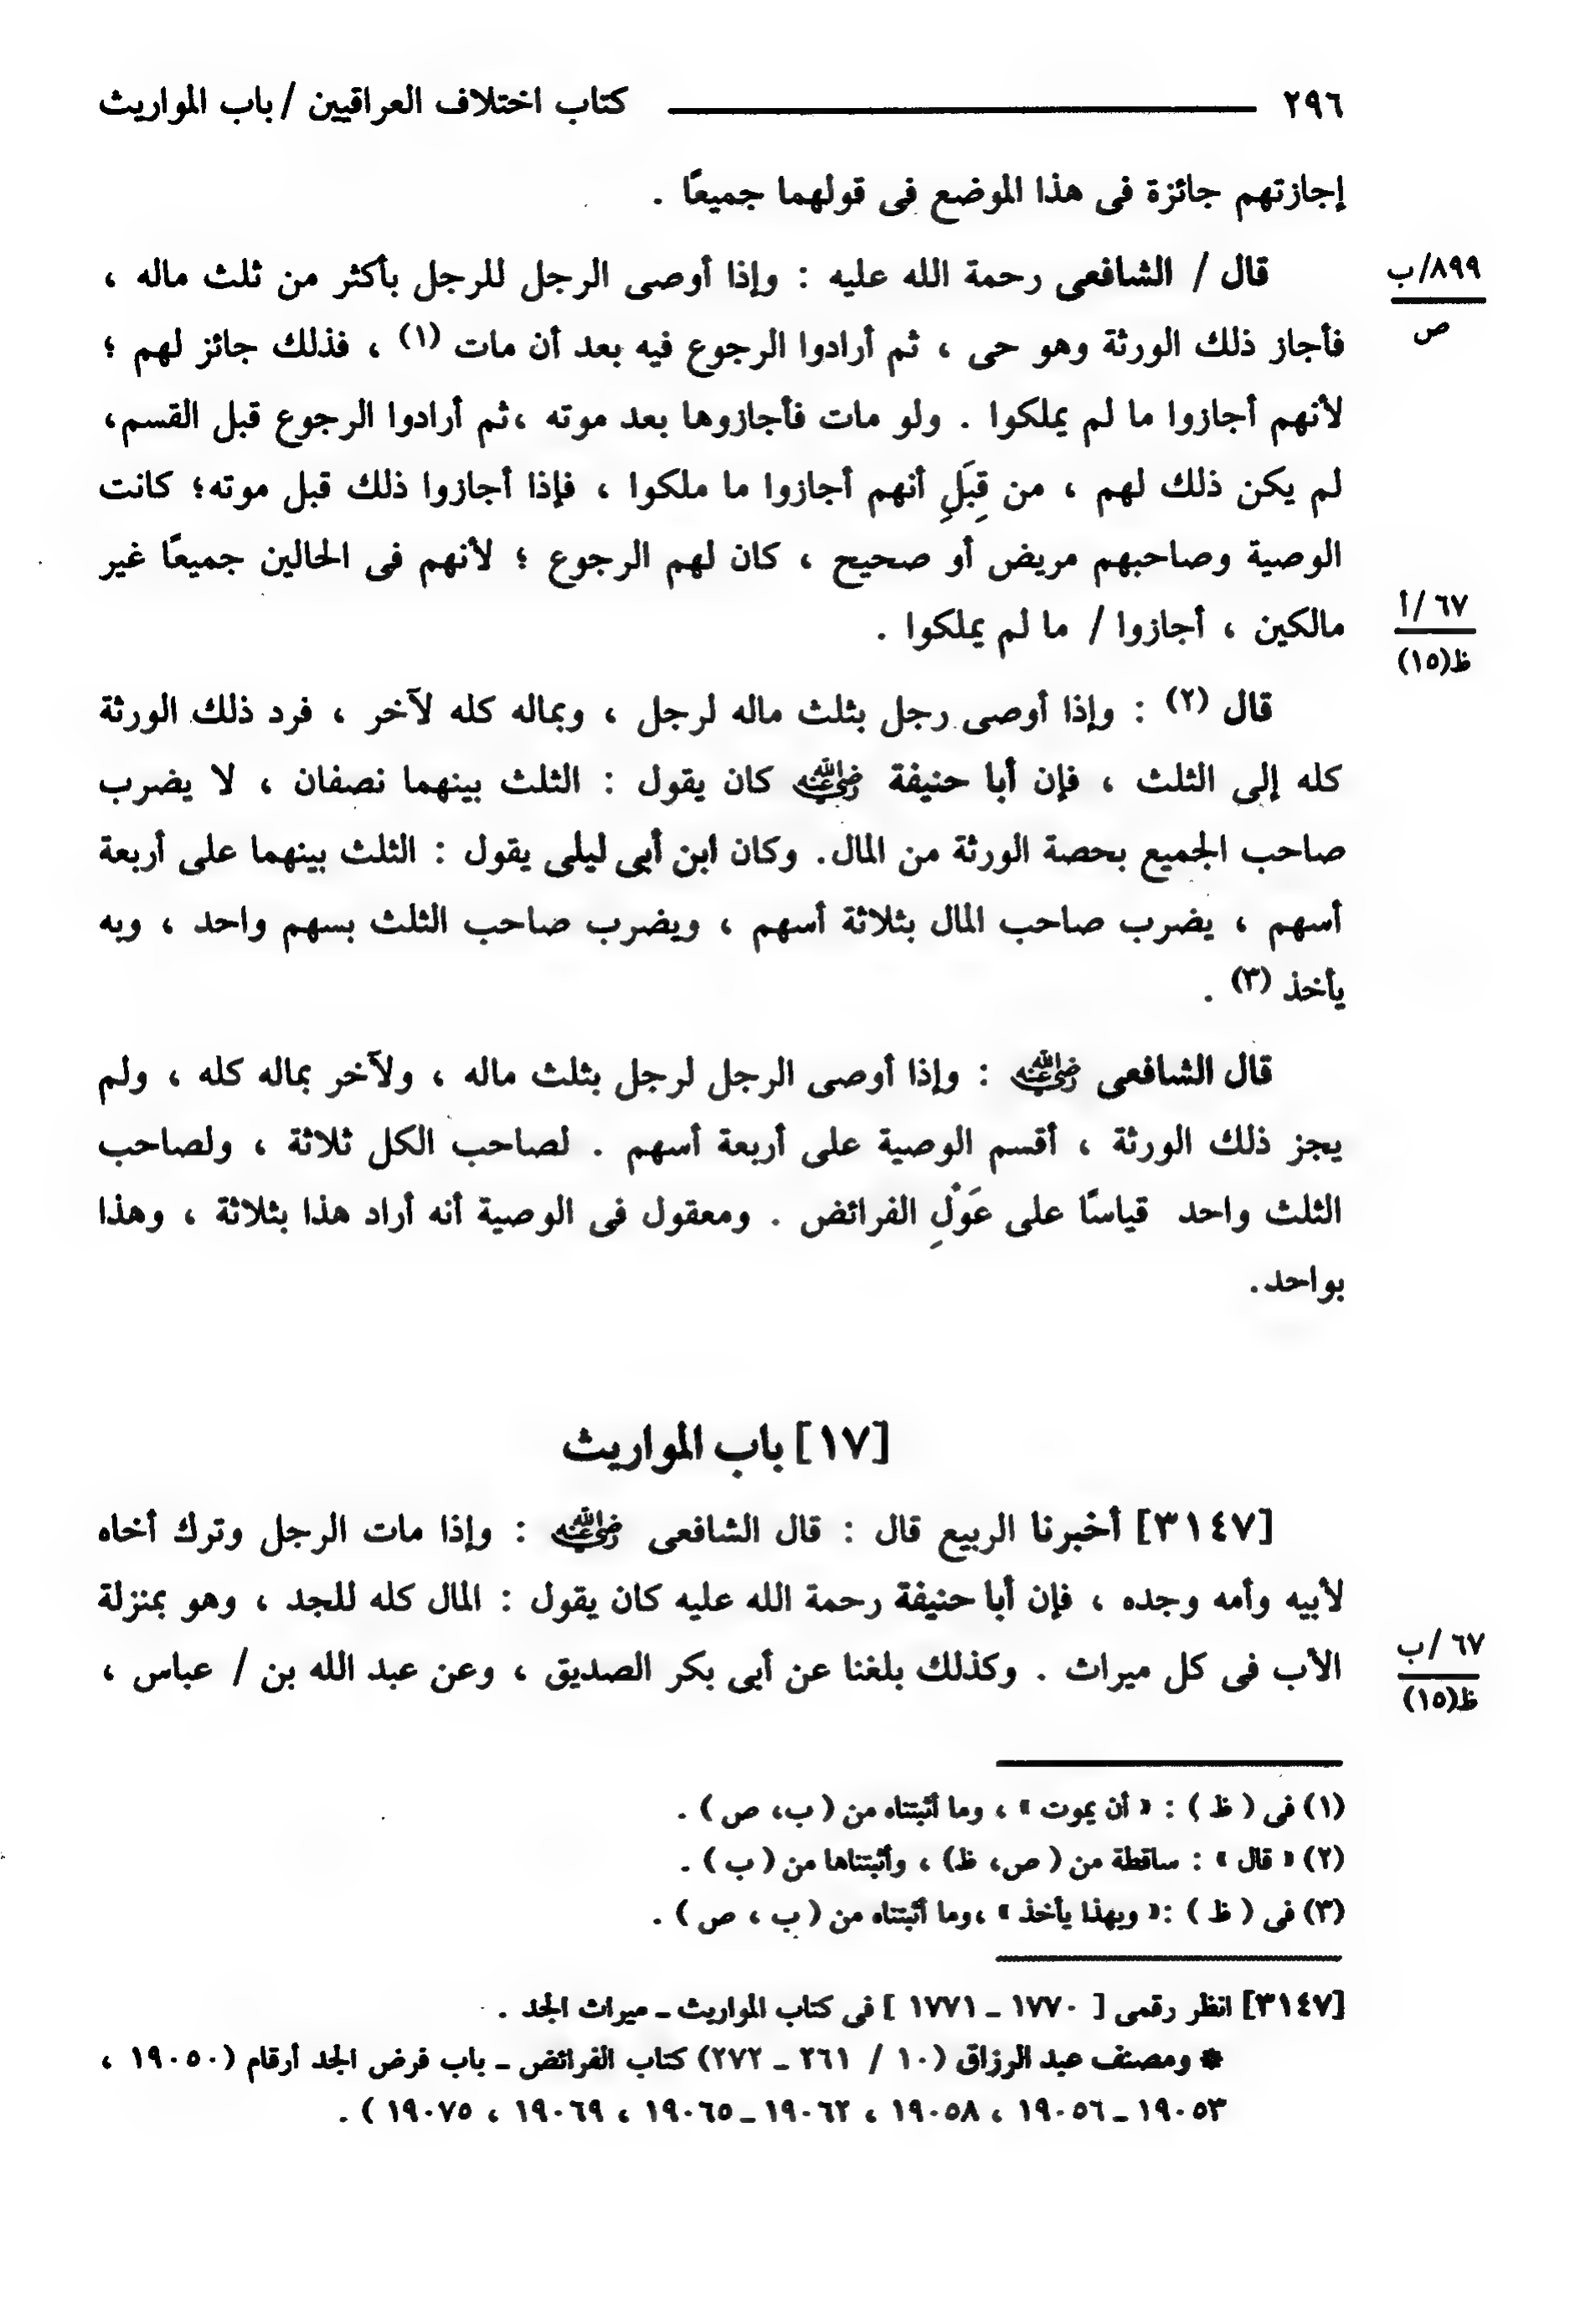 ٢٩٦ ــــــــــــــــ كتاب اختلاف العراقيين / باب المواريث
إجازتهم جائزة فى هذا الموضع فى قولهما جميعًا .
قال / الشافعى رحمة الله عليه : وإذا أوصى الرجل للرجل بأكثر من ثلث ماله ،
٨٩٩/ب
ص
فأجاز ذلك الورثة وهو حى ، ثم أرادوا الرجوع فيه بعد أن مات (١) ، فذلك جائز لهم ؛
لأنهم أجازوا ما لم يملكوا . ولو مات فأجازوها بعد موته ،ثم أرادوا الرجوع قبل القسم،
لم يكن ذلك لهم ، من قِبَلِ أنهم أجازوا ما ملكوا ، فإذا أجازوا ذلك قبل موته؛ كانت
الوصية وصاحبهم مريض أو صحيح ، كان لهم الرجوع ؛ لأنهم فى الحالين جميعًا غير
مالكين ، أجازوا / ما لم يملكوا .
٦٧ /أ
ظ(١٥)
قال (٢) : وإذا أوصى رجل بثلث ماله لرجل ، وبماله كله لآخر ، فرد ذلك الورثة
كله إلى الثلث ، فإن أبا حنيفة رضي الله عنه كان يقول : الثلث بينهما نصفان ، لا يضرب
صاحب الجميع بحصة الورثة من المال. وكان ابن أبى ليلى يقول : الثلث بينهما على أربعة
أسهم ، يضرب صاحب المال بثلاثة أسهم ، ويضرب صاحب الثلث بسهم واحد ، وبه
يأخذ (٣) .
قال الشافعى رضي الله عنه : وإذا أوصى الرجل لرجل بثلث ماله ، ولآخر بماله كله ، ولم
يجز ذلك الورثة ، أقسم الوصية على أربعة أسهم . لصاحب الكل ثلاثة ، ولصاحب
الثلث واحد قياسًا على عَوْلِ الفرائض . ومعقول فى الوصية أنه أراد هذا بثلاثة ، وهذا
بواحد.
[١٧] باب المواريث
[٣١٤٧] أخبرنا الربيع قال : قال الشافعى رضي الله عنه : وإذا مات الرجل وترك أخاه
لأبيه وأمه وجده ، فإن أبا حنيفة رحمة الله عليه كان يقول : المال كله للجد ، وهو بمنزلة
الأب فى كل ميراث . وكذلك بلغنا عن أبى بكر الصديق ، وعن عبد الله بن / عباس ،
٦٧ /ب
ظ(١٥)
(١) فى ( ظ ) : « أن يموت » ، وما أثبتناه من ( ب، ص ) .
(٢) « قال » : ساقطة من ( ص، ظ) ، وأثبتناها من ( ب ) .
(٣) فى ( ظ ) :« وبهذا يأخذ » ،وما أثبتناه من ( ب ، ص ) .
[٣١٤٧] انظر رقمى [ ١٧٧٠ ـ ١٧٧١ ] فى كتاب المواريث ـ ميراث الجد .
* ومصنف عبد الرزاق (١٠ / ٢٦١ ـ ٢٧٢) كتاب الفرائض ـ باب فرض الجد أرقام (١٩٠٥٠ ،
١٩٠٥٣ ـ ١٩٠٥٦ ، ١٩٠٥٨ ، ١٩٠٦٢ ـ ١٩٠٦٥ ، ١٩٠٦٩ ، ١٩٠٧٥ ) .